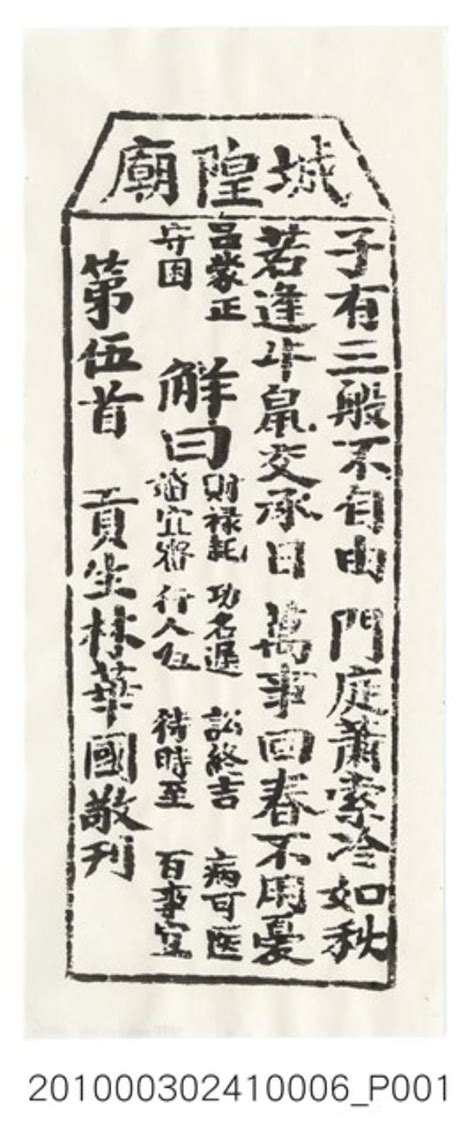 城隍廟
子有三般不自由 門庭蕭索冷如秋
若逢牛鼠交承日 萬事回春不用憂
呂蒙正
守困
解曰
財禄耗 功名遲 訟終吉 病可医
宜 行人 待時至 百事宜
第伍首 貢生林華國敬刊
201000302410006_P001